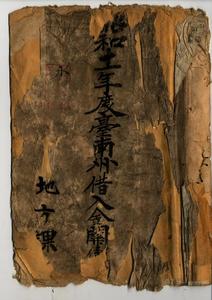 昭和十一年度臺南州借入金關
地方課